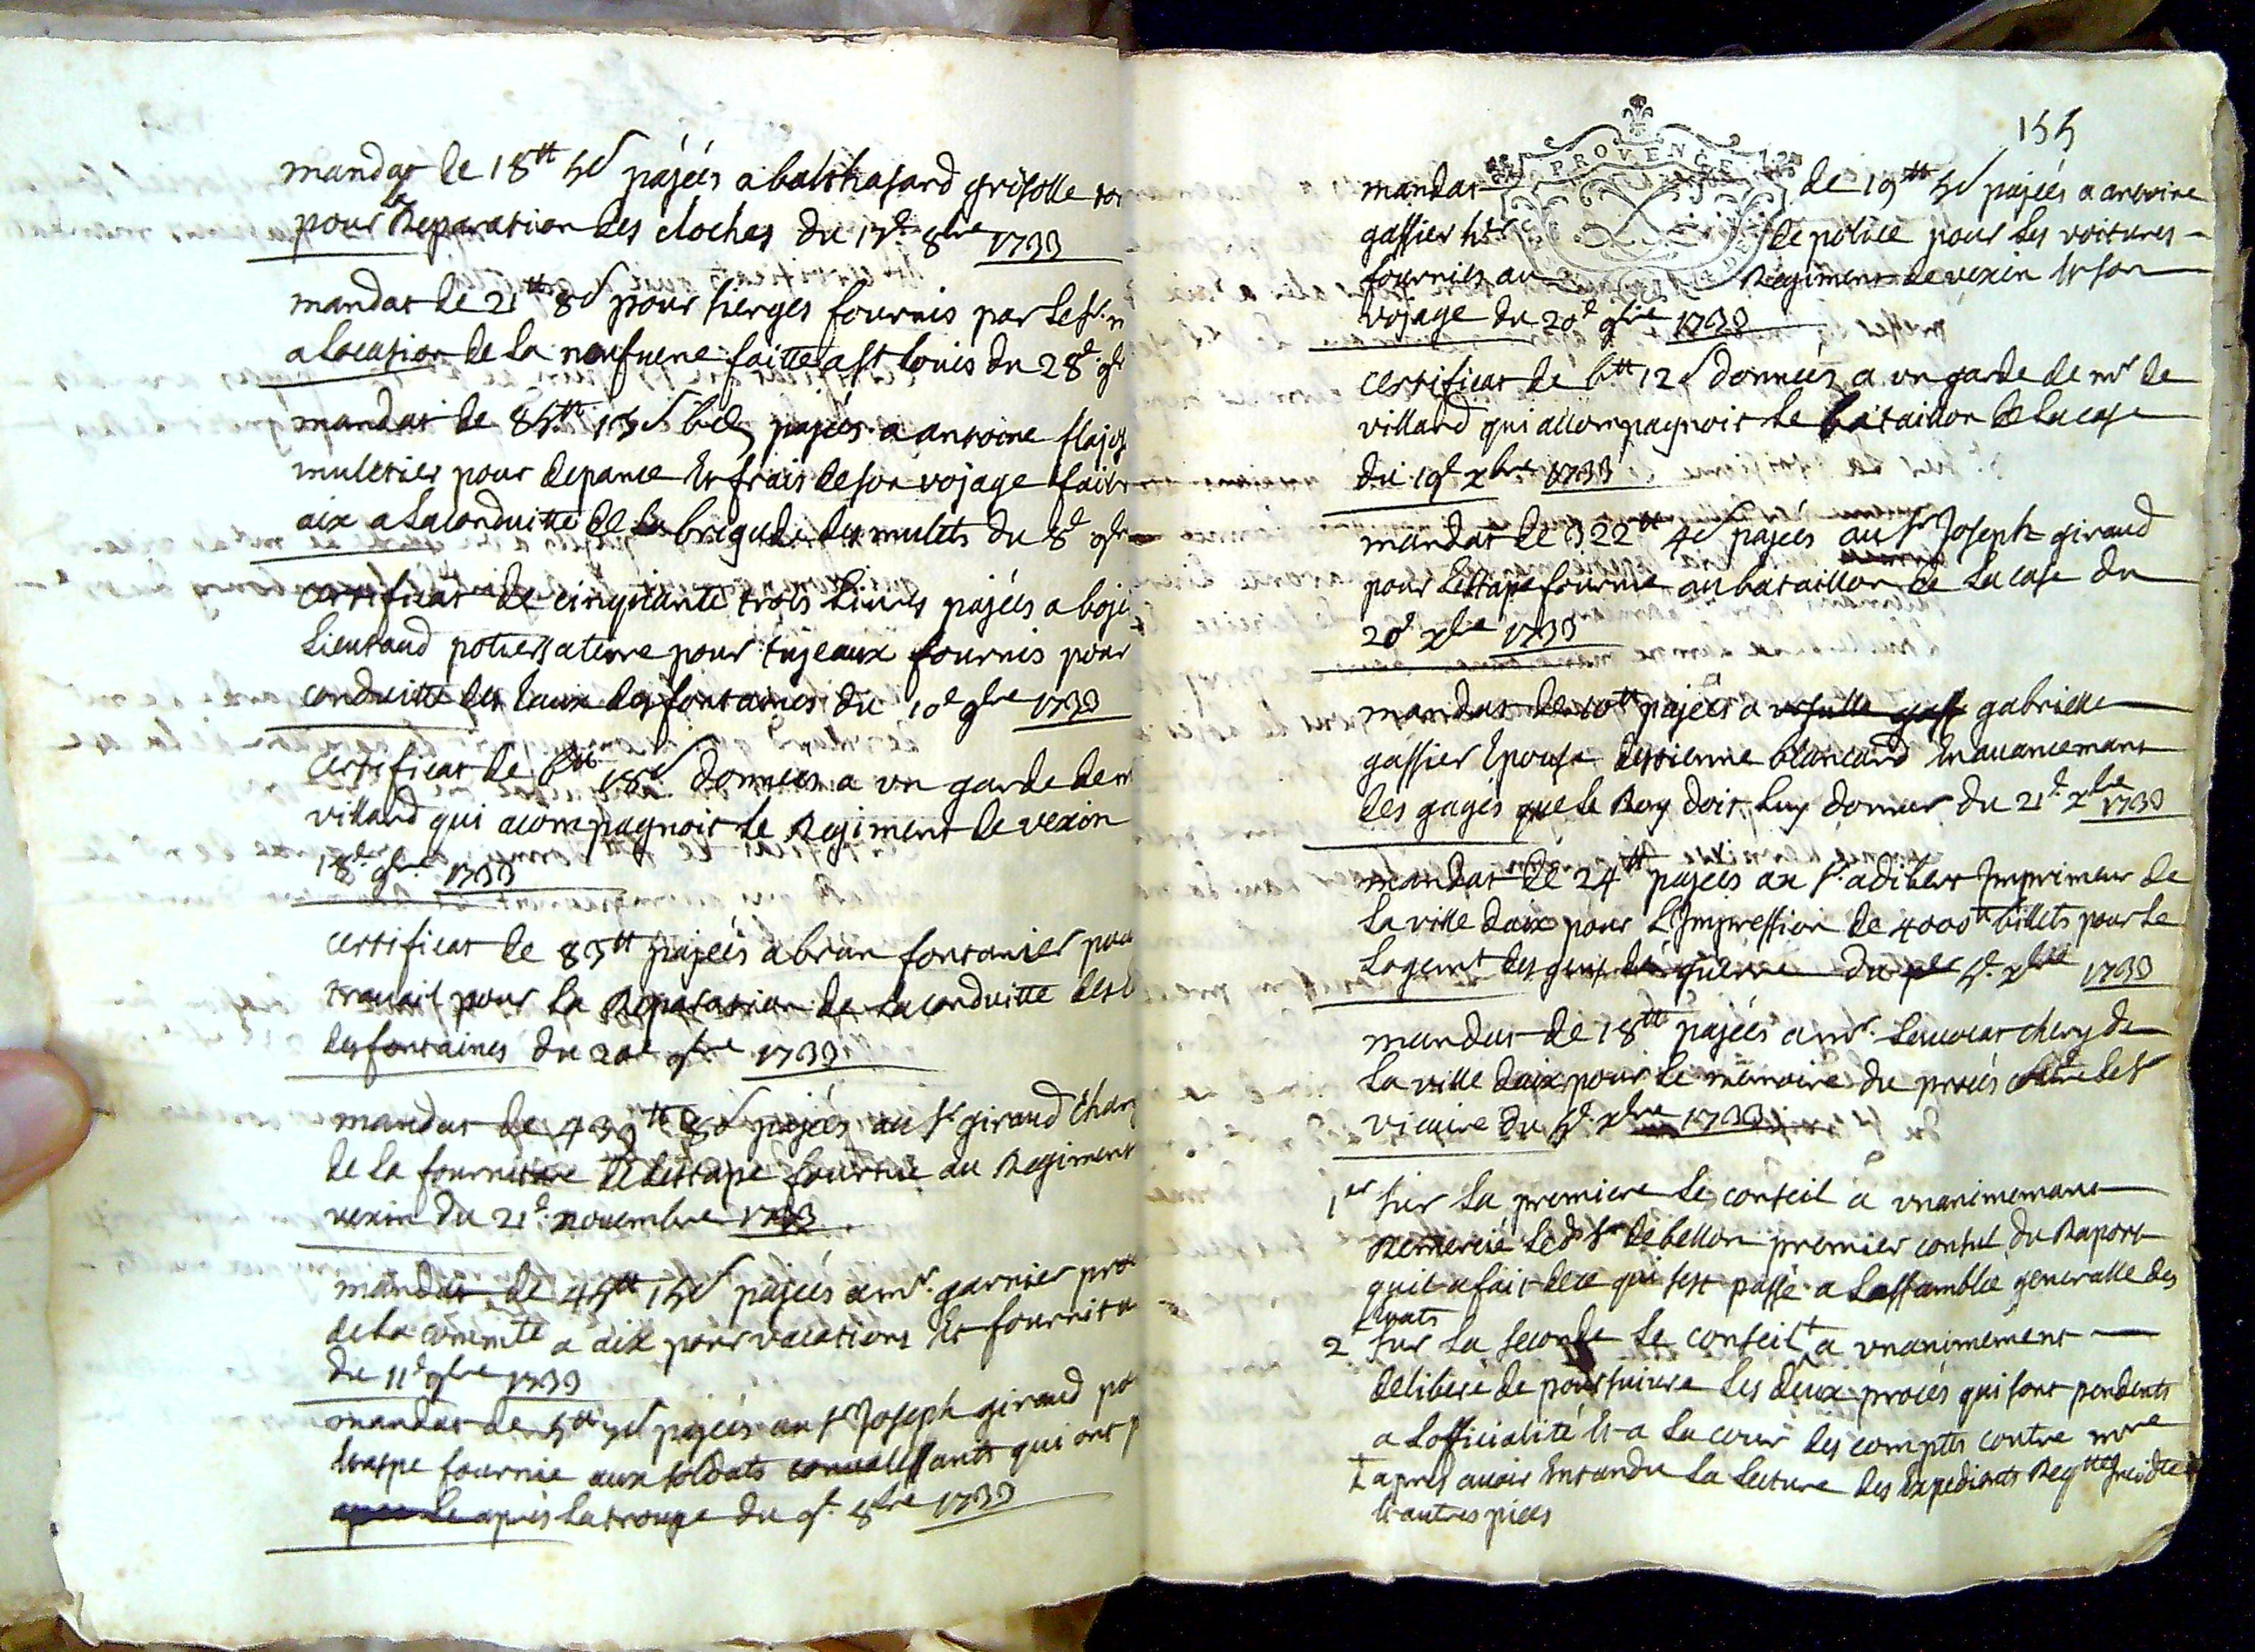 mandat de 18tt 5s pajéés a balthasard grisolle
pour la Reparation des cloches du 17e 8bre 1733
mandat de 21tt 8s pour sierges fournis par le sr
a locasion de la neufuene faitte a st louis du 28e
mandat de 85tt 13s 6d pajéés a antoine
muletier pour depance et frais de son vojage fait
aix a la conduitte de la brigade des mulets du 8e
certificat de cinquante trois liures pajéés a
Lieutaud potier a terre pour tujeaux fournis pour
conduitte des eaux des fontaines du 10e 9bre 1733
certificat de 6tt 18s données a vn garde de
villard qui acompagnoit le Regiment de vexin
18e 9bre 1733
certificat de 83tt pajéés a brun fontanier
trauail pour la Reparation de la conduitte des
des fontaines du 20e 9bre 1733
mandat de 439tt 8s pajéés au sr giraud
de la fourniture de lestape fournie au Regiment
vexin du 21e nouembre 1733
mandat de 45tt 15s pajéés a mr garnier
de la commté a aix pour vacations et
du 11e 9bre 1733
mandat de 5tt 5s pajéés au sr Joseph giraud
letaspe fournie aux soldats conualessants qui ont
apres la troupe du 9e 8bre 1733
155
PROVENCE
mandat de 19tt 5s pajéés a antoine
gassier de police pour les voitures
fournies au Regiment de vexin et son
vojage du 20e 9bre 1733
certificat de 6tt 12s données a vn garde de mr de
villard qui acompagnoit le bataillon de la case
du 19e xbre 1733
mandat de 322tt 4s pajéés au sr Joseph giraud
pour lestape fournie au bataillon de la case du
20e xbre 1733
mandat de 10tt pajéés a gabrielle
gassier epouse destienne blancard en auancemant
des gages que le Roy doit luy donner du 21e xbre 1733
mandat de 24tt pajéés au sr adibert Imprimeur de
la ville daix pour L'Impression de 4000 billets pour le
Logemt des gens de guerre du 5e xbre 1733
mandat de 18tt pajéés a mr Lauocat chery de
la ville daix pour le memoire du procés contre le sr
vicaire du 5e xbre 1733
1er sur la premiere le conseil a vnanimemant
Remercié led sr de bellon premier consul du Raport
quil a fait de ce qui sest passé a Lassamblée generalle des
etats
2 sur la seconde le conseil + a vnanimement
deliberé de poursuiure les deux procés qui sont pendents
a Lofficialité et a la cour des comptes contre mre
+ apres auoir entandu la lecture des expedients
et autres pieces